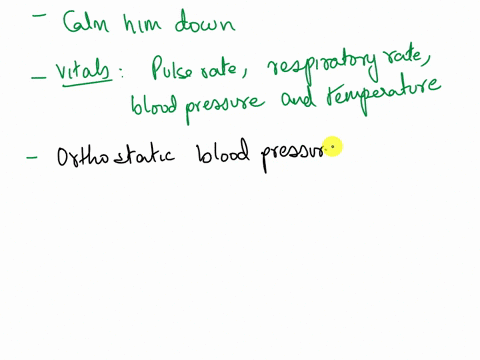 - Calm him down
- Vitals : Pulse rate, respiratory rate,
blood pressure and temperature
- Orthostatic blood pressur